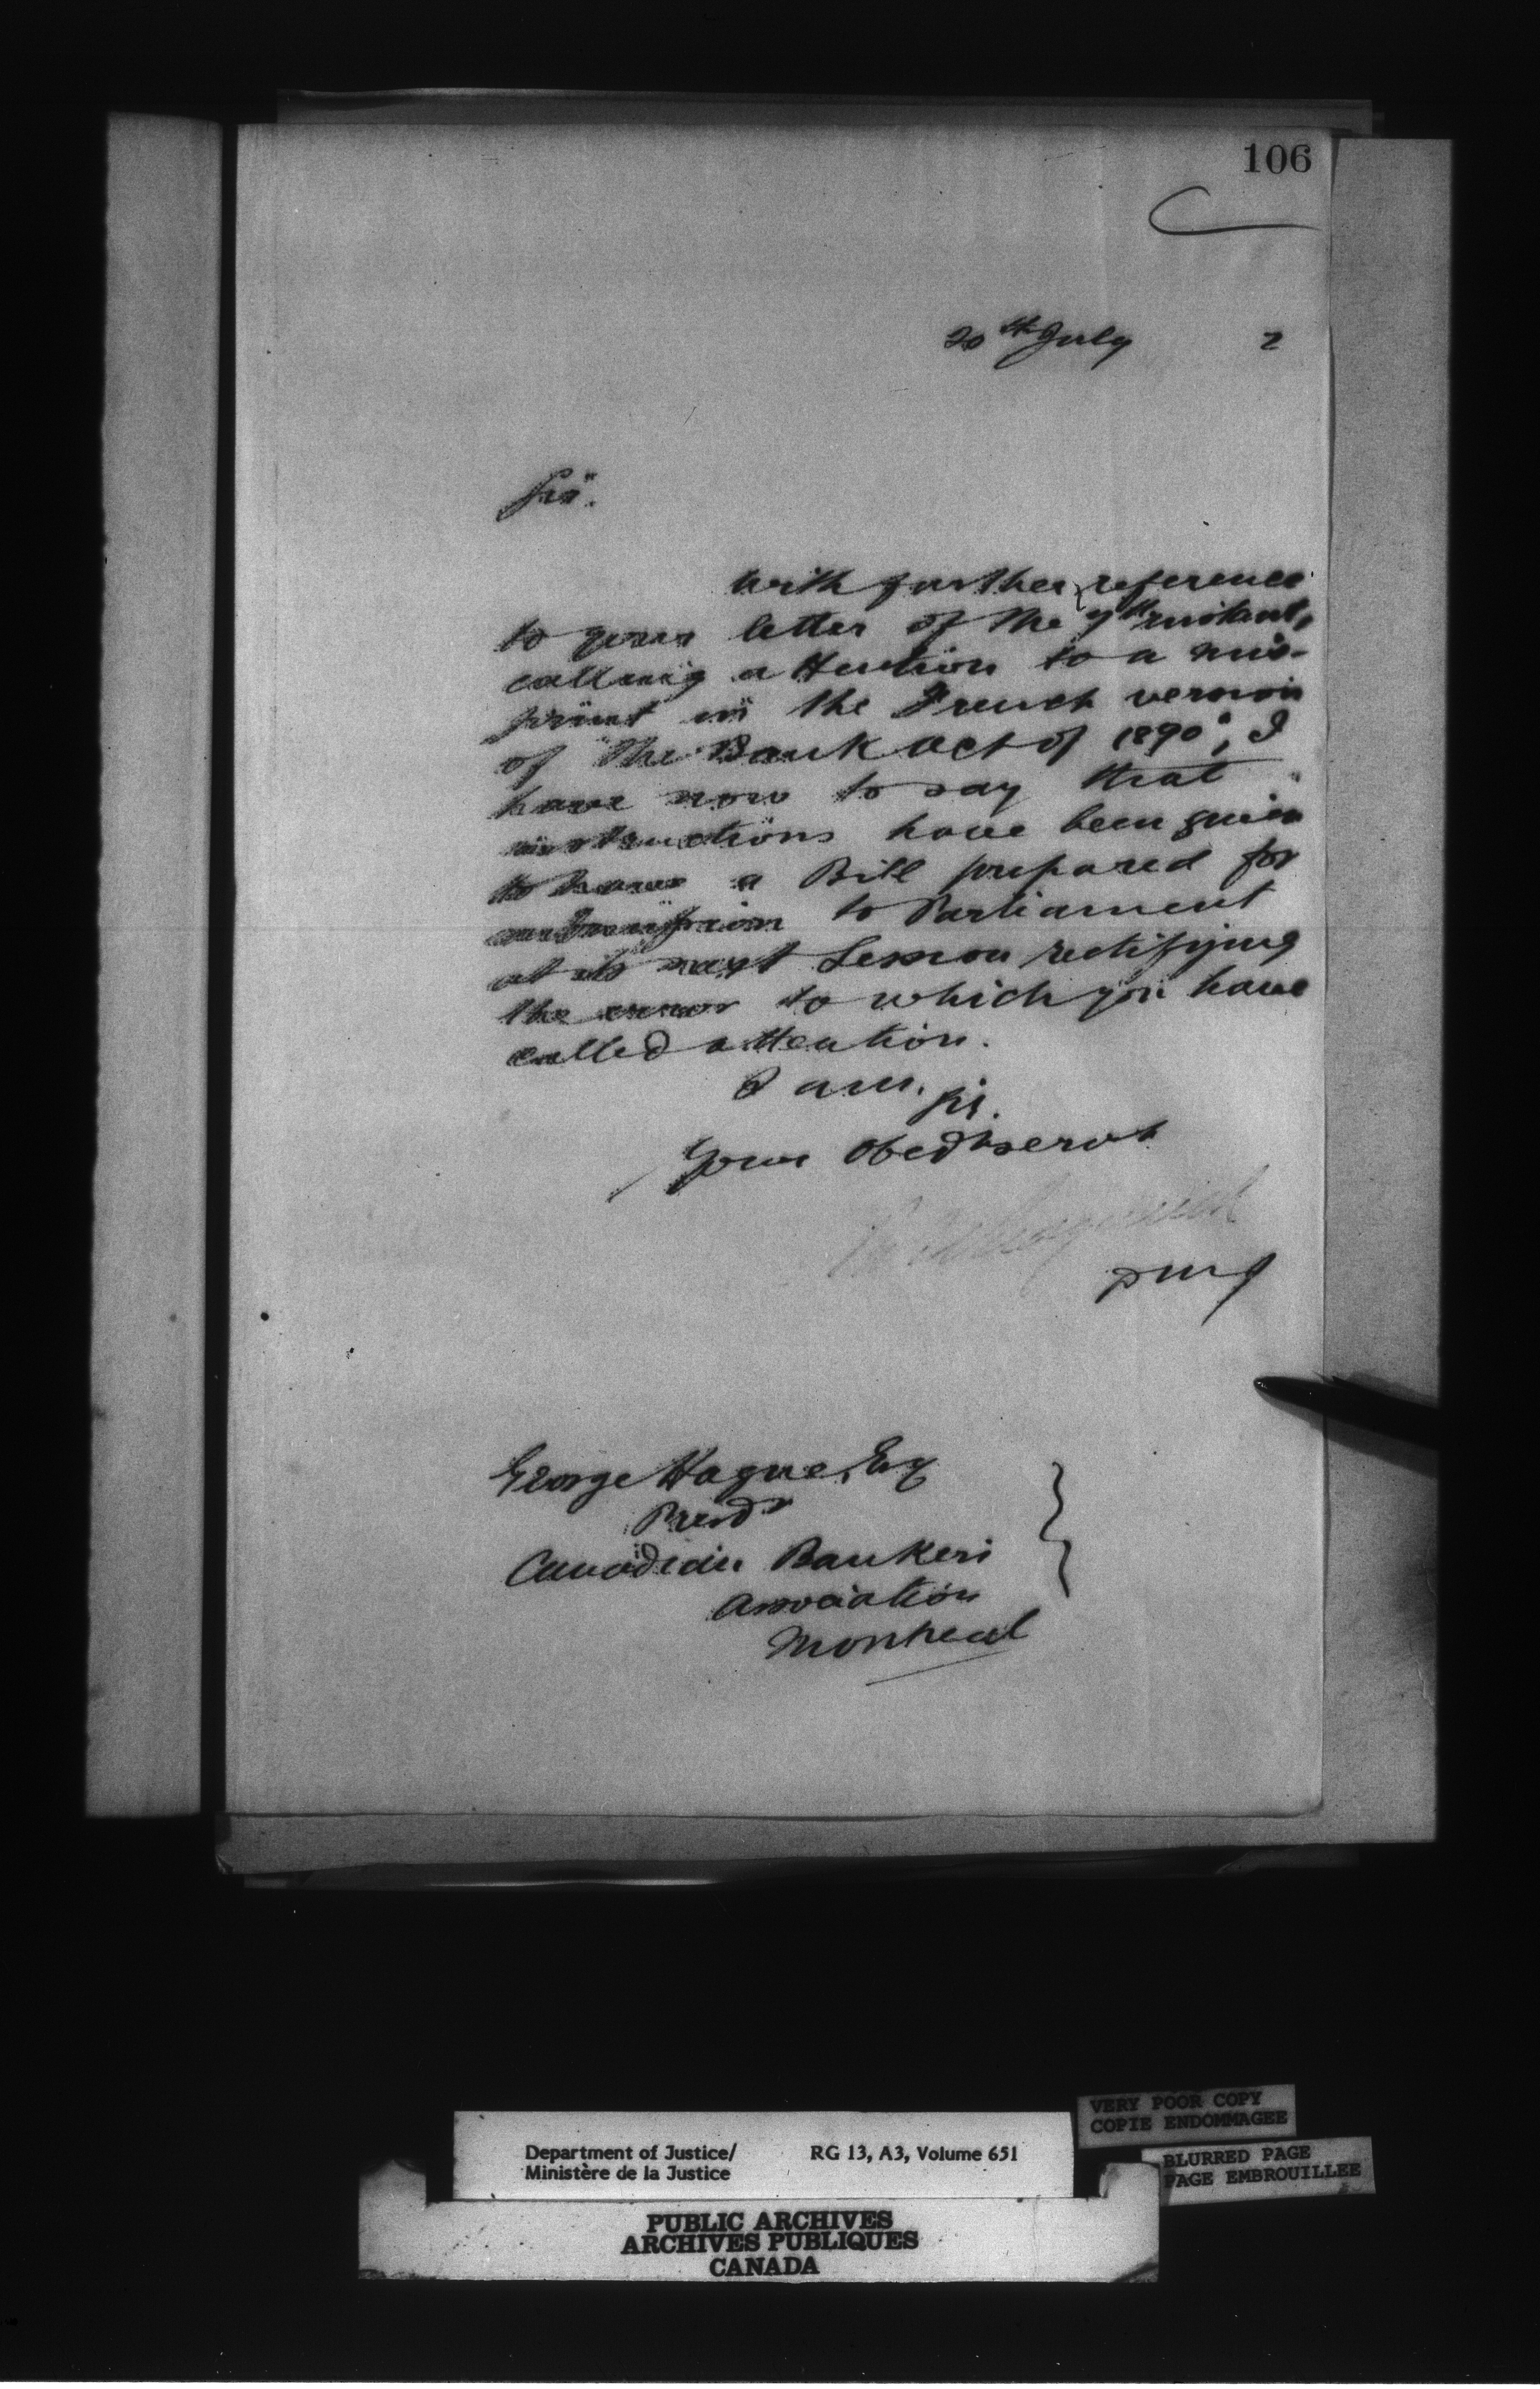 106
20th July 2
Sir.
With further reference
to your letter of the 7th instant,
calling attention to a mis-
print in the French version
of "The Bank Act of 1890", I
have now to say that
instructions have been given
to have a Bill prepared for
submission to Parliament
at its next Session rectifying
the error to which you have
called attention.
I am, Sir.
Your Obedt servt
DMJ
George Hague, Esq
Presdt
Canadian Bankers
Association
Montreal
VERY POOR COPY
COPIE ENDOMMAGEE
Department of Justice/ RG 13, A3, Volume 651
Ministère de la Justice
BLURRED PAGE
PAGE EMBROUILLEE
PUBLIC ARCHIVES
ARCHIVES PUBLIQUES
CANADA